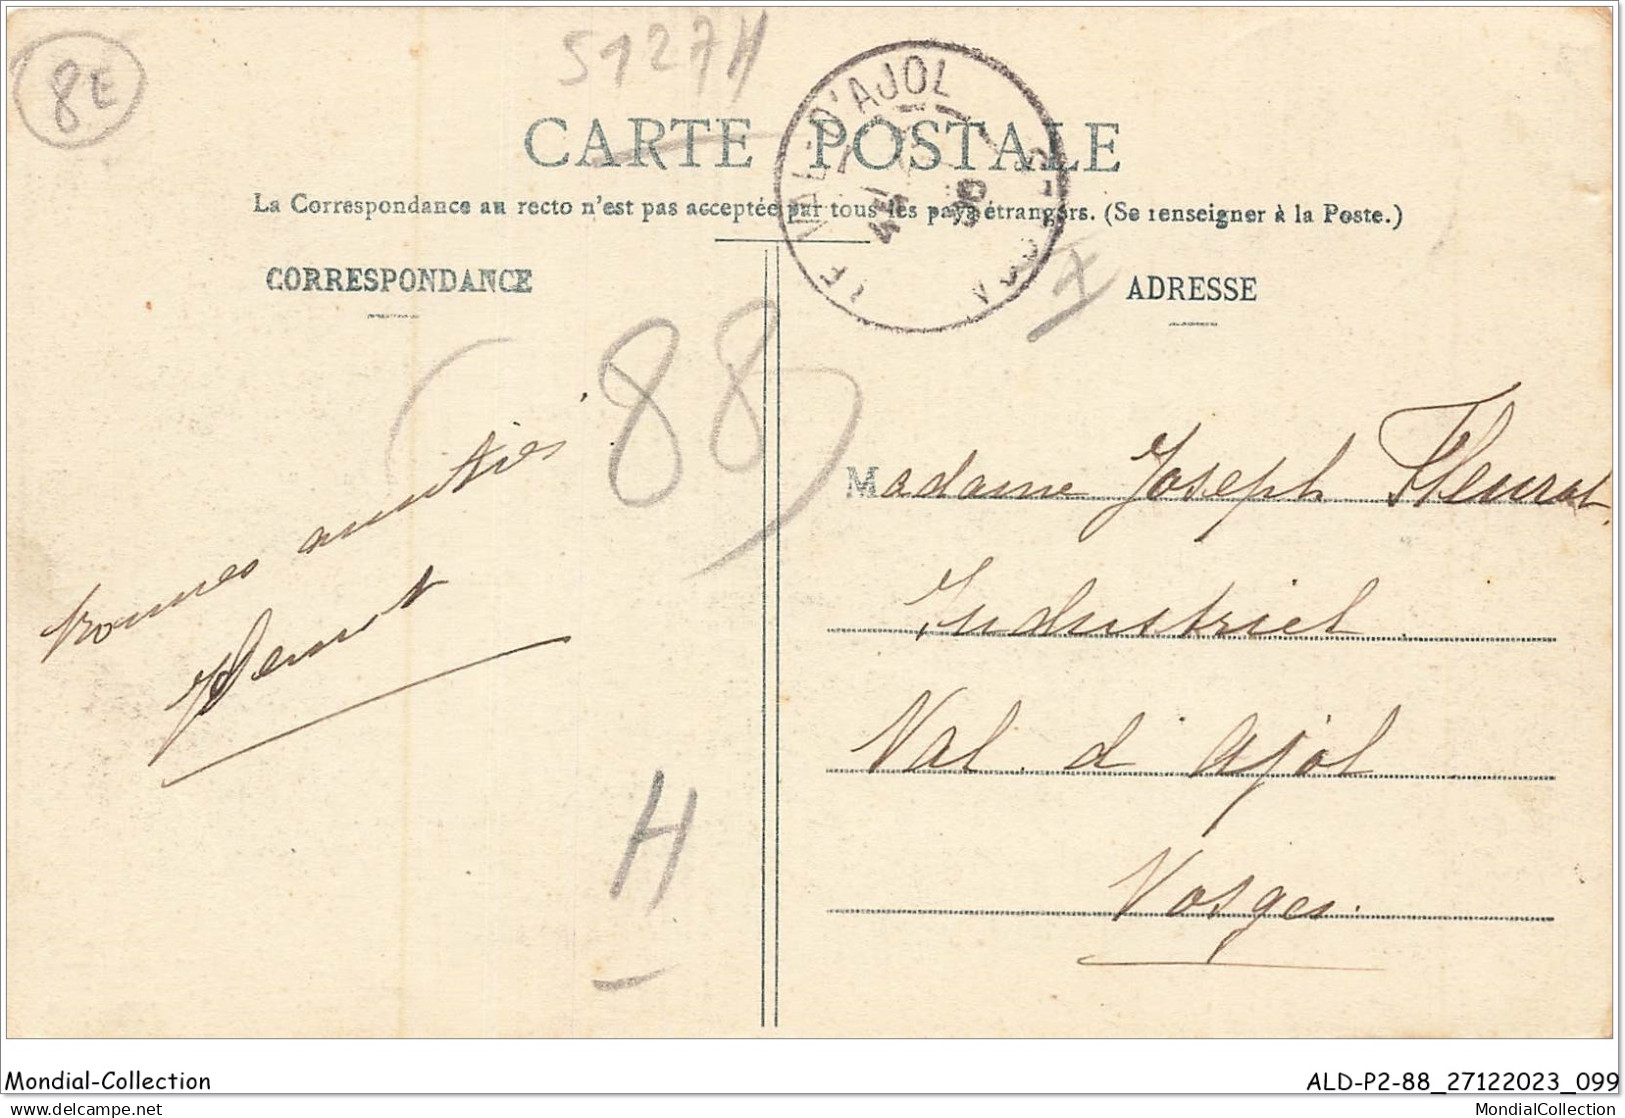 8E
5127H
CARTE POSTALE
La Correspondance au recto n'est pas acceptée par tous les pays étrangers. (Se renseigner à la Poste.)
LE VAL-D'AJOL
VOSGES
CORRESPONDANCE
ADRESSE
88
Bonnes amitiés
Madame Joseph Fleurot
Industriel
Val d'Ajol
Vosges.
H
Mondial-Collection
ALD-P2-88_27122023_099
delcampe.net
MondialCollection